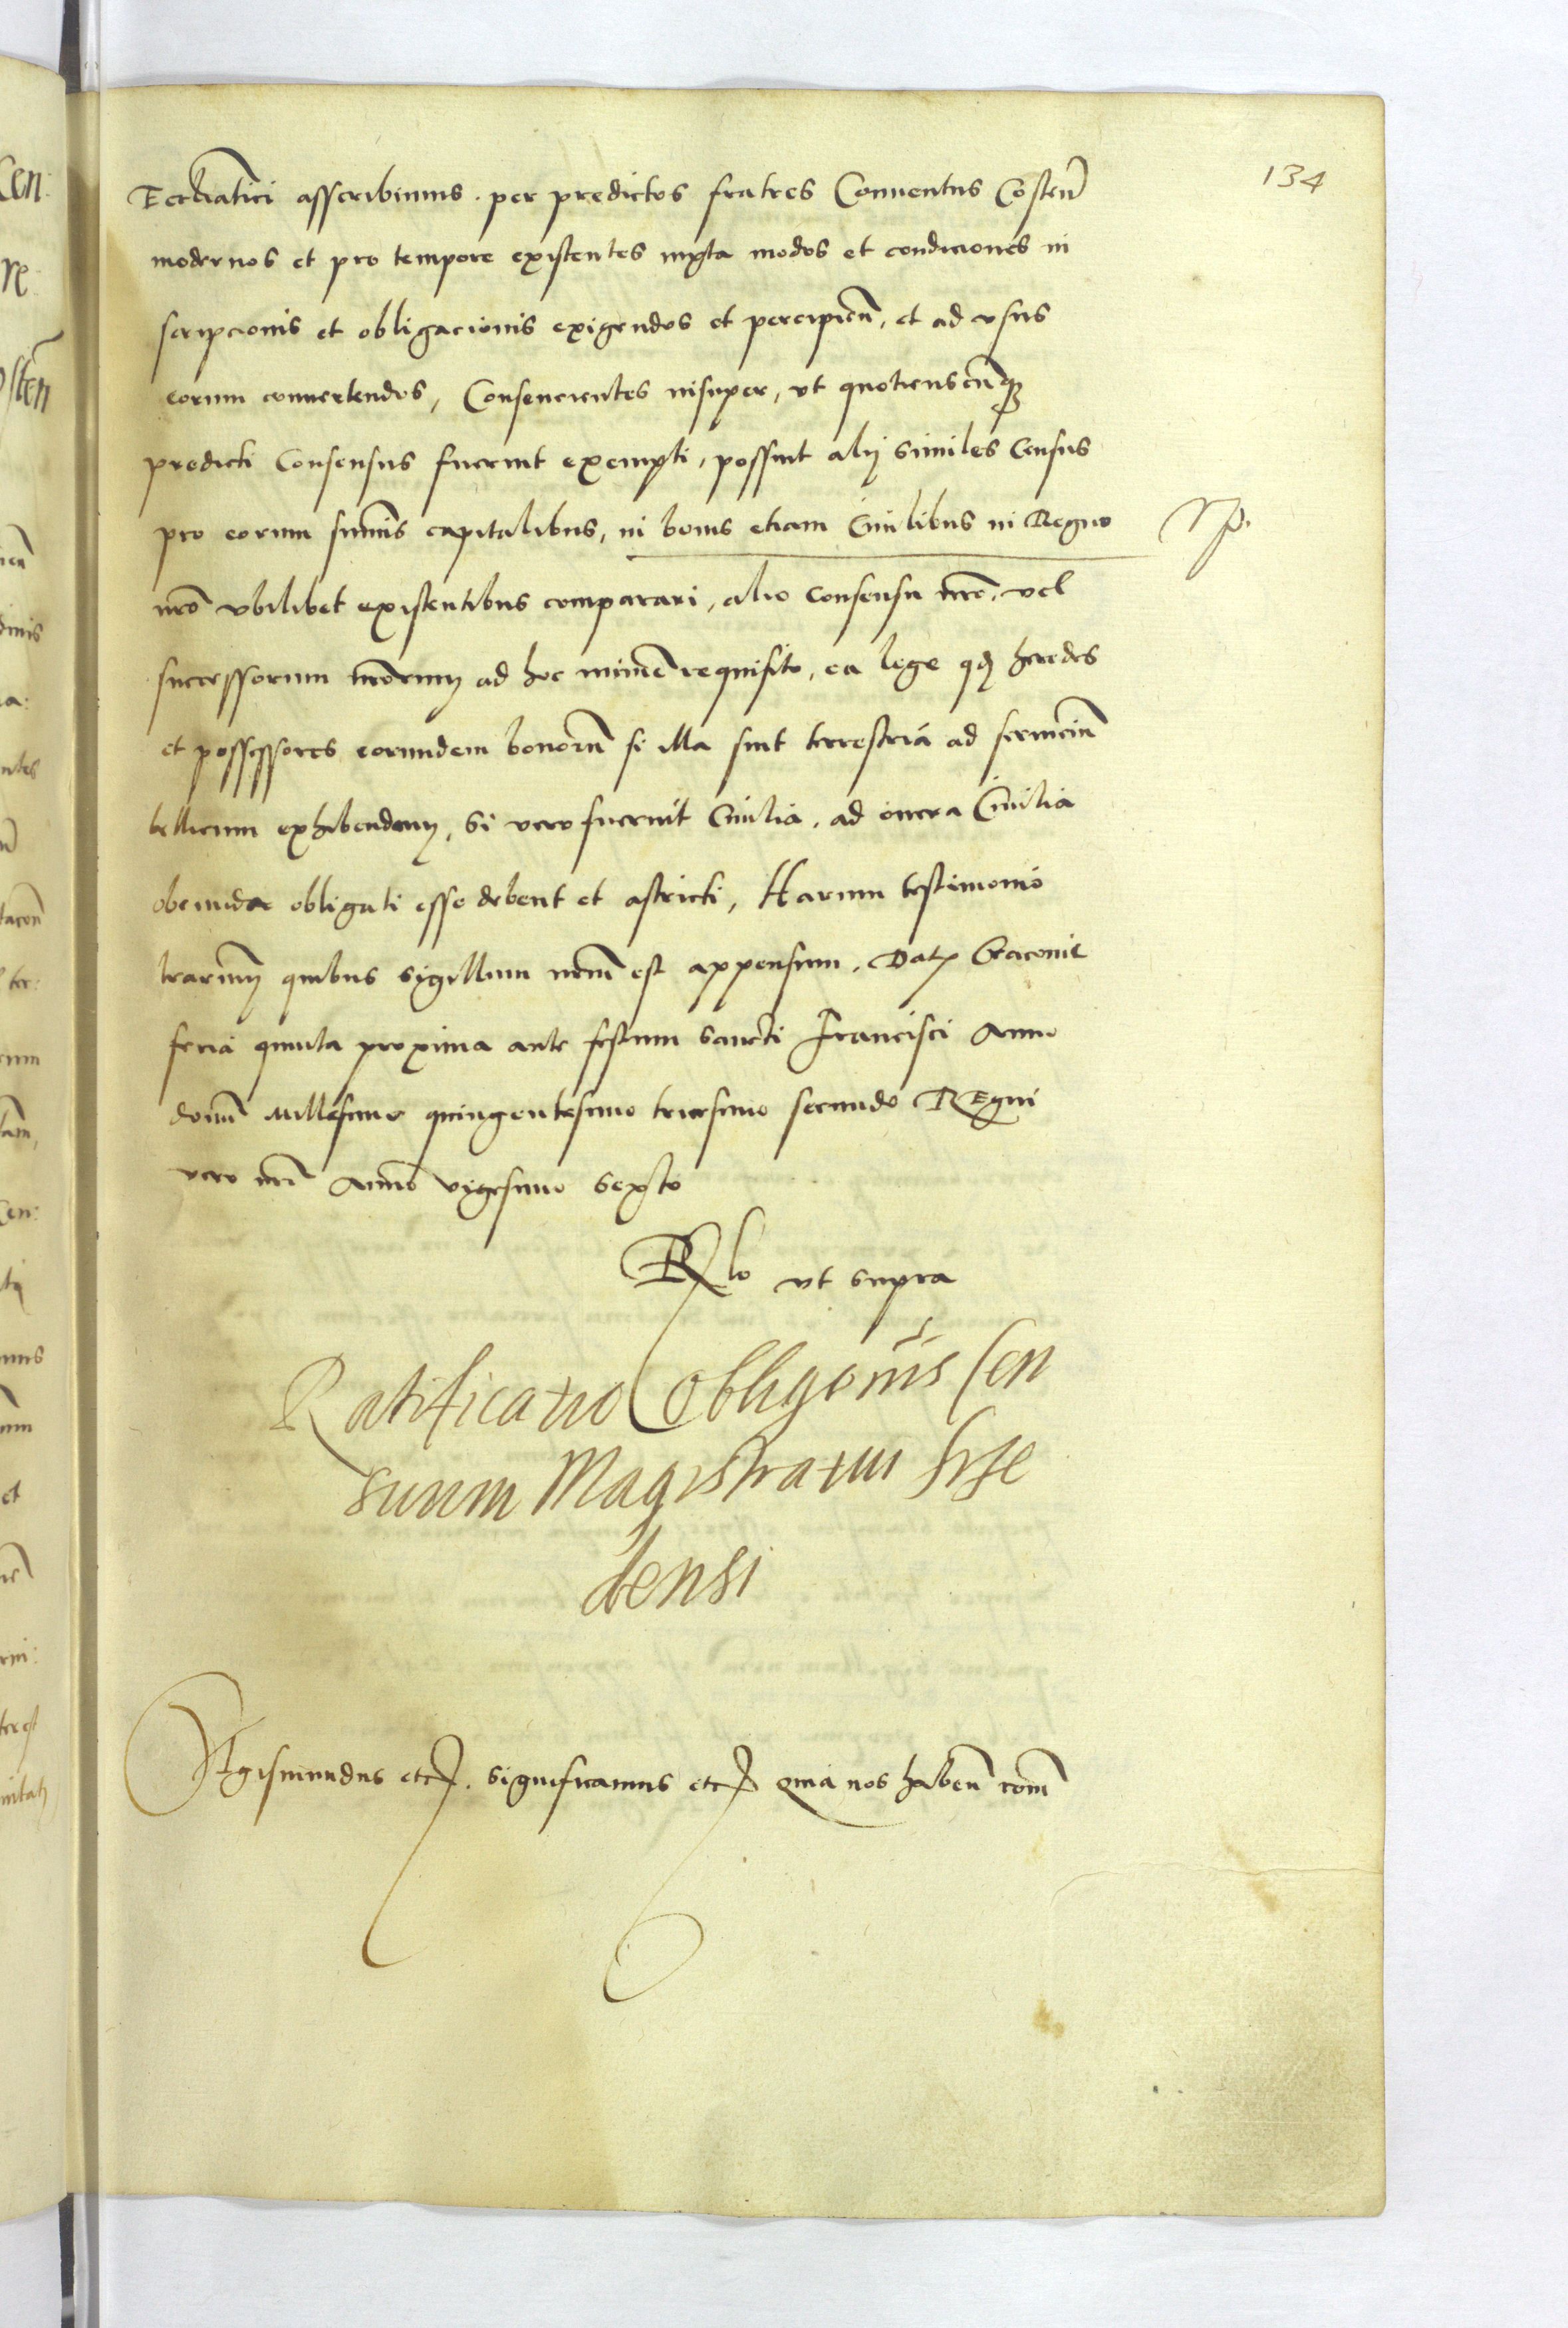 134
Ecclia͞tici asscribimus . per predictos fratres Conuentus Costen͞
modernos et pro tempore existentes iuxta modos et condiciones in
scripcionis et obligacionis exigendos et percipien͞, et ad vsus
eorum conuertendos, Consencientes insuper, vt quotienscun͞qꝫ
predicti Consensus fuerint exempti, possint alij similes Census
pro eorum sum͞is capitalibus, in bonis etiam Ciuilibus in Regno
nr͞o vbilibet existentibus comparari, alio consensu nr͞o, vel
successorum nr͞orum ad hoc minime͞ requisito, ea lege qd heredes
et possessores eorundem bonoru͞ si illa sint terrestria ad seruiciu͞
bellicum exhibendum, Si vero fuerint Ciuilia, ad onera Ciuilia
obeunda obligati esse debent et astricti, Harum testimonio
lrarum͞ quibus sigillum nrm͞ est appensum. Dat Cracouie
feria quinta proxima ante festum sancti Francisci Anno
domi͞ Millesimo quingentesimo tricesimo secundo REgni
vero nr͞i Anno vigesimo sexto
Rlo vt supra
Ratificatio Obligo͞nis Cen
suum Magistratui
densi
Sigismundus etc. significamus etc Quia nos haben͞ com͞